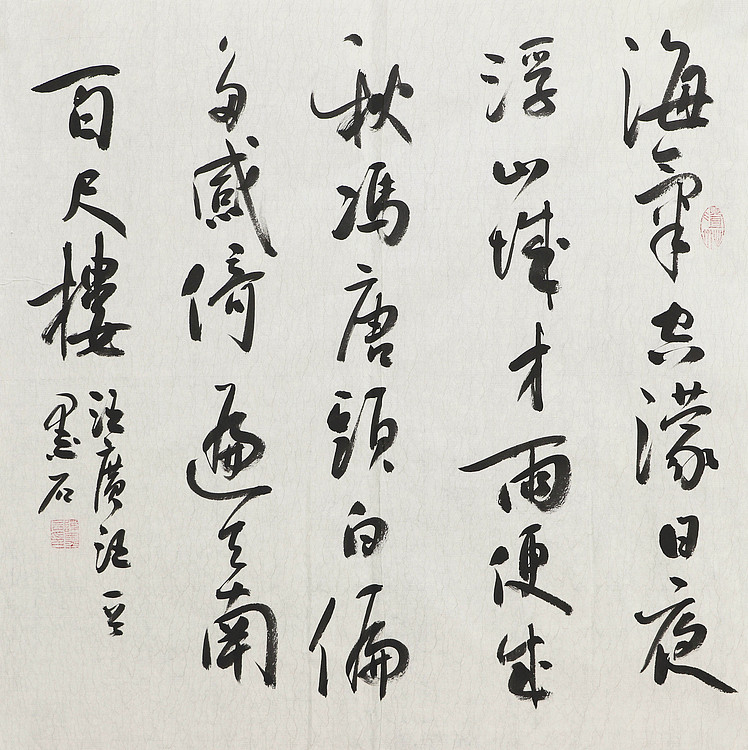 海氣空濛日夜
浮山城才雨便成
秋馮唐頭白偏
多感倚遍天南
百尺樓
汪廣
墨石